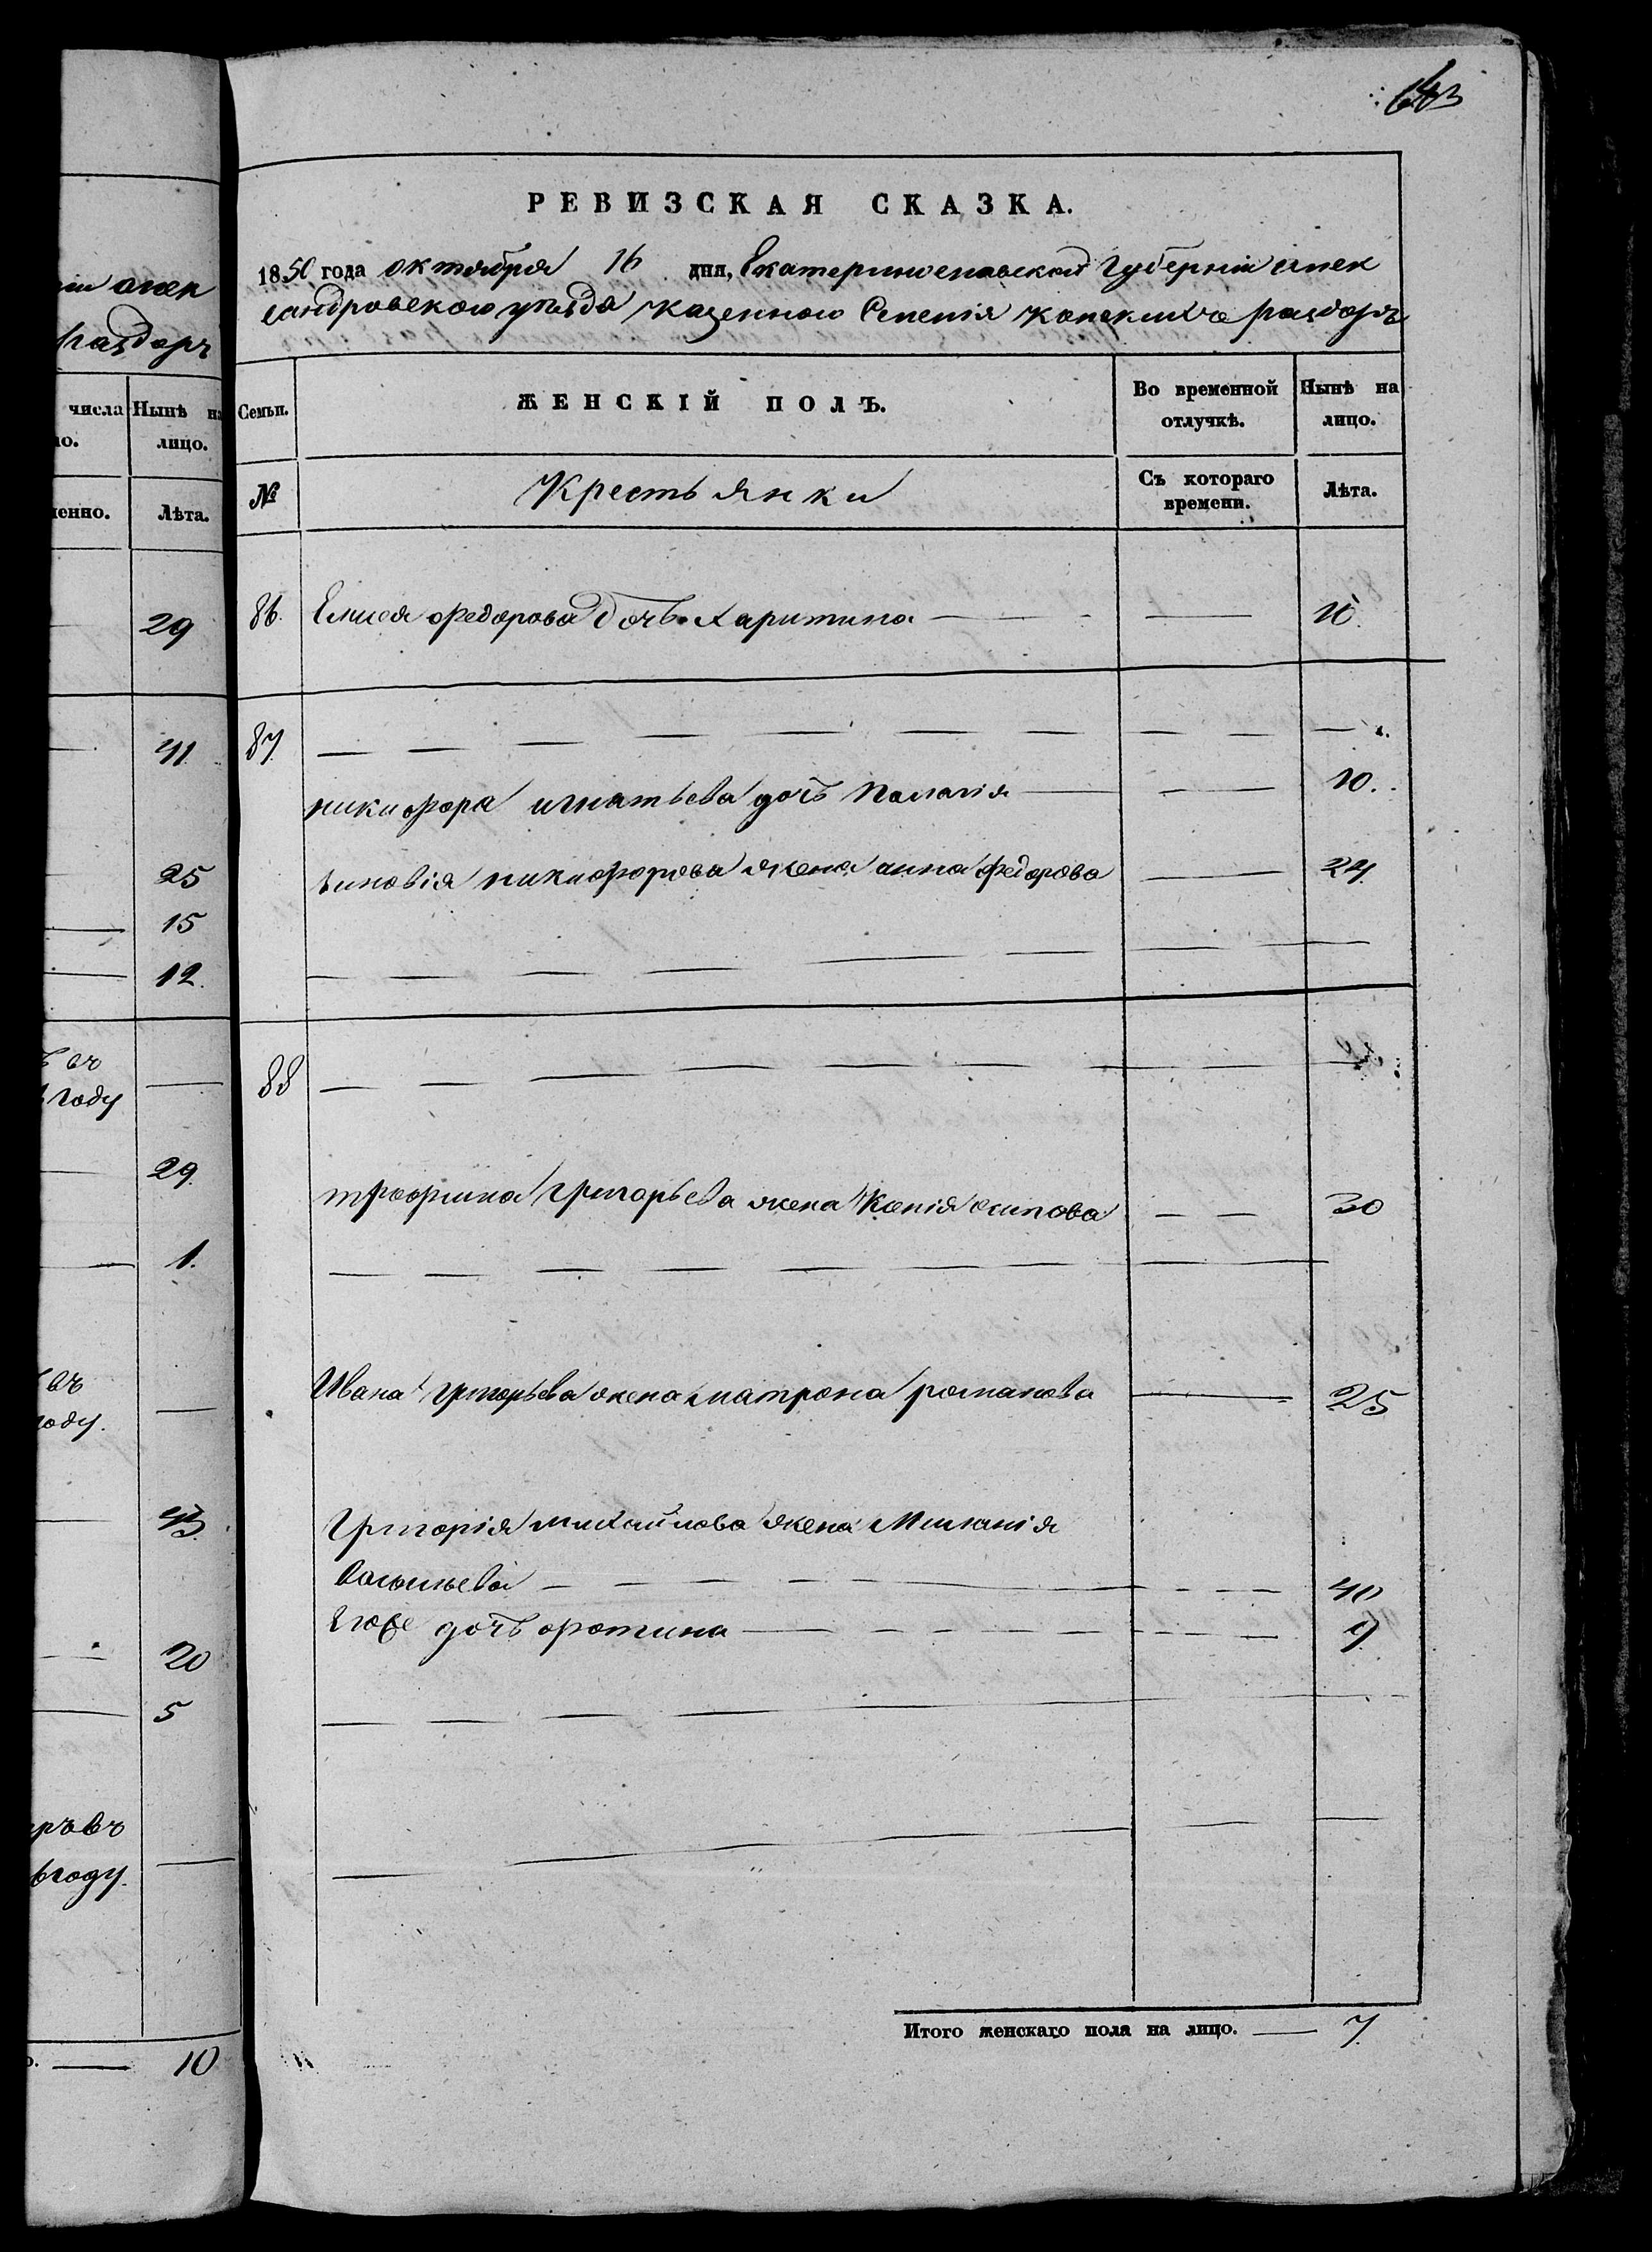 РЕВИЗСКАЯ СКАЗКА.
1850 года октября 16 дня, Екатеринославской Губерніи Алек
сандровского уезда Казенного Селенія Конскихъ раздоръ
ніи алек
раздоръ
числа Нынѣ на
лицо.
Лѣта.
29
41
25
15
12.
въ
году
29.
1.
въ
году.
43.
20
5
году.
10
Семьи. ЖЕНСКІЙ ПОЛЪ. Во временной отлучкѣ. Нынѣ на лицо.
№ Крестьянки Съ котораго времени. Лѣта.
86. Елисея Федорова дочь Харитина 10.
87
никифора игнатьева дочь Палагія 10.
зиновія никифорова жена анна федорова 24.
88
трофима Григорьева жена Ксенія осипова 30
Ивана Григорьева жена матрона романова 25
Григорія михайлова жена Меланія
Васильева 40
Его же дочь фотина 9
Итого женскаго пола на лицо. 7.